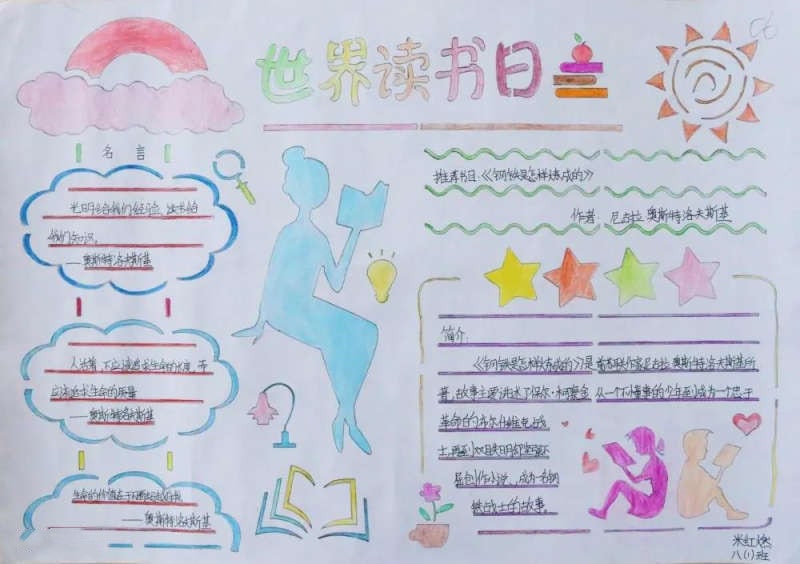 世界读书日
名言
光明给我们经验，读书给
我们知识。
——奥斯特洛夫斯基
人活着，不应该追求生命的长度，而
应该追求生命的质量
——奥斯特洛夫斯基
生命的价值在于
——奥斯特洛夫斯基
推荐书目：《钢铁是怎样炼成的》
作者 尼古拉 奥斯特洛夫斯基
简介：
《钢铁是怎样炼成的》是前苏联作家尼古拉·奥斯特洛夫斯基所
著，故事主要讲述了保尔·柯察金 从一个不懂事的少年到成为一个忠于
革命的布尔什维克战
士，再到双目失明却坚强不
屈创作小说，成为一名钢
铁战士的故事
八(1)班